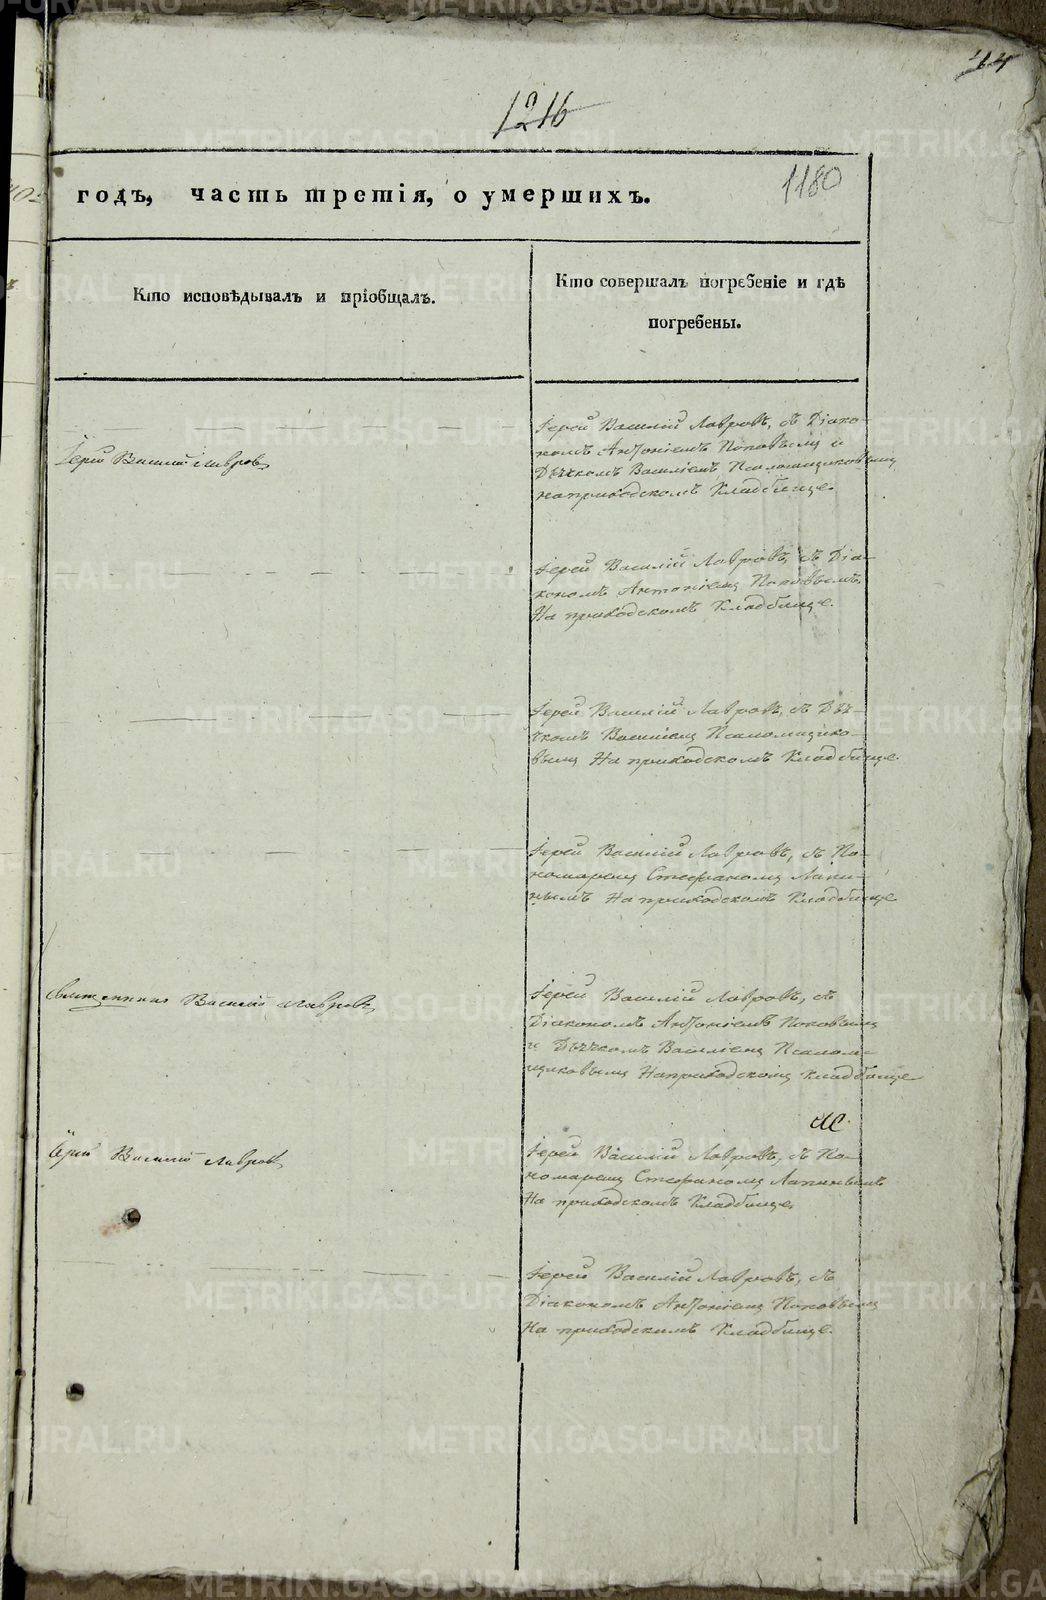 44
1216
1180
годъ, часть третія, о умершихъ.
Кто исповѣдывалъ и пріобщалъ.
Кто совершалъ погребеніе и гдѣ
погребены.
Іерей Василій Лавровъ, съ Діако-
номъ Антоніемъ Поповымъ и
Дьячкомъ Василіемъ Псаломщиковымъ
на приходскомъ Кладбище.
Іерей Василій Лавровъ
Іерей Василій Лавровъ, съ Діа-
кономъ Антоніемъ Поповымъ
На приходскомъ Кладбище.
Іерей Василій Лавровъ, съ Дья-
чкомъ Василіемъ Псаломщико-
вымъ На приходскомъ Кладбище.
Іерей Василій Лавровъ, съ По-
номаремъ Стефаномъ Лапи-
нымъ На приходскомъ Кладбище
Священникъ Василій Лавровъ
Іерей Василій Лавровъ, съ
Діакономъ Антоніемъ Поповымъ
и Дьячкомъ Василіемъ Псалом-
щиковымъ На приходскомъ Кладбище
Іерей Василій Лавровъ
Іерей Василій Лавровъ, съ По-
номаремъ Стефаномъ Лапинымъ
На приходскомъ Кладбище.
Іерей Василій Лавровъ, съ
Діакономъ Антоніемъ Поповымъ
На приходскомъ Кладбище.
METRIKI.GASO-URAL.RU